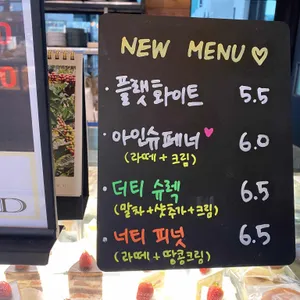 NEW MENU ♡
· 플랫화이트 5.5
· 아인슈페너 ♥ 6.0
(라떼 + 크림)
· 더티 슈렉 6.5
(말차 + 샷추가 + 크림)
· 너티 피넛 6.5
(라떼 + 땅콩크림)